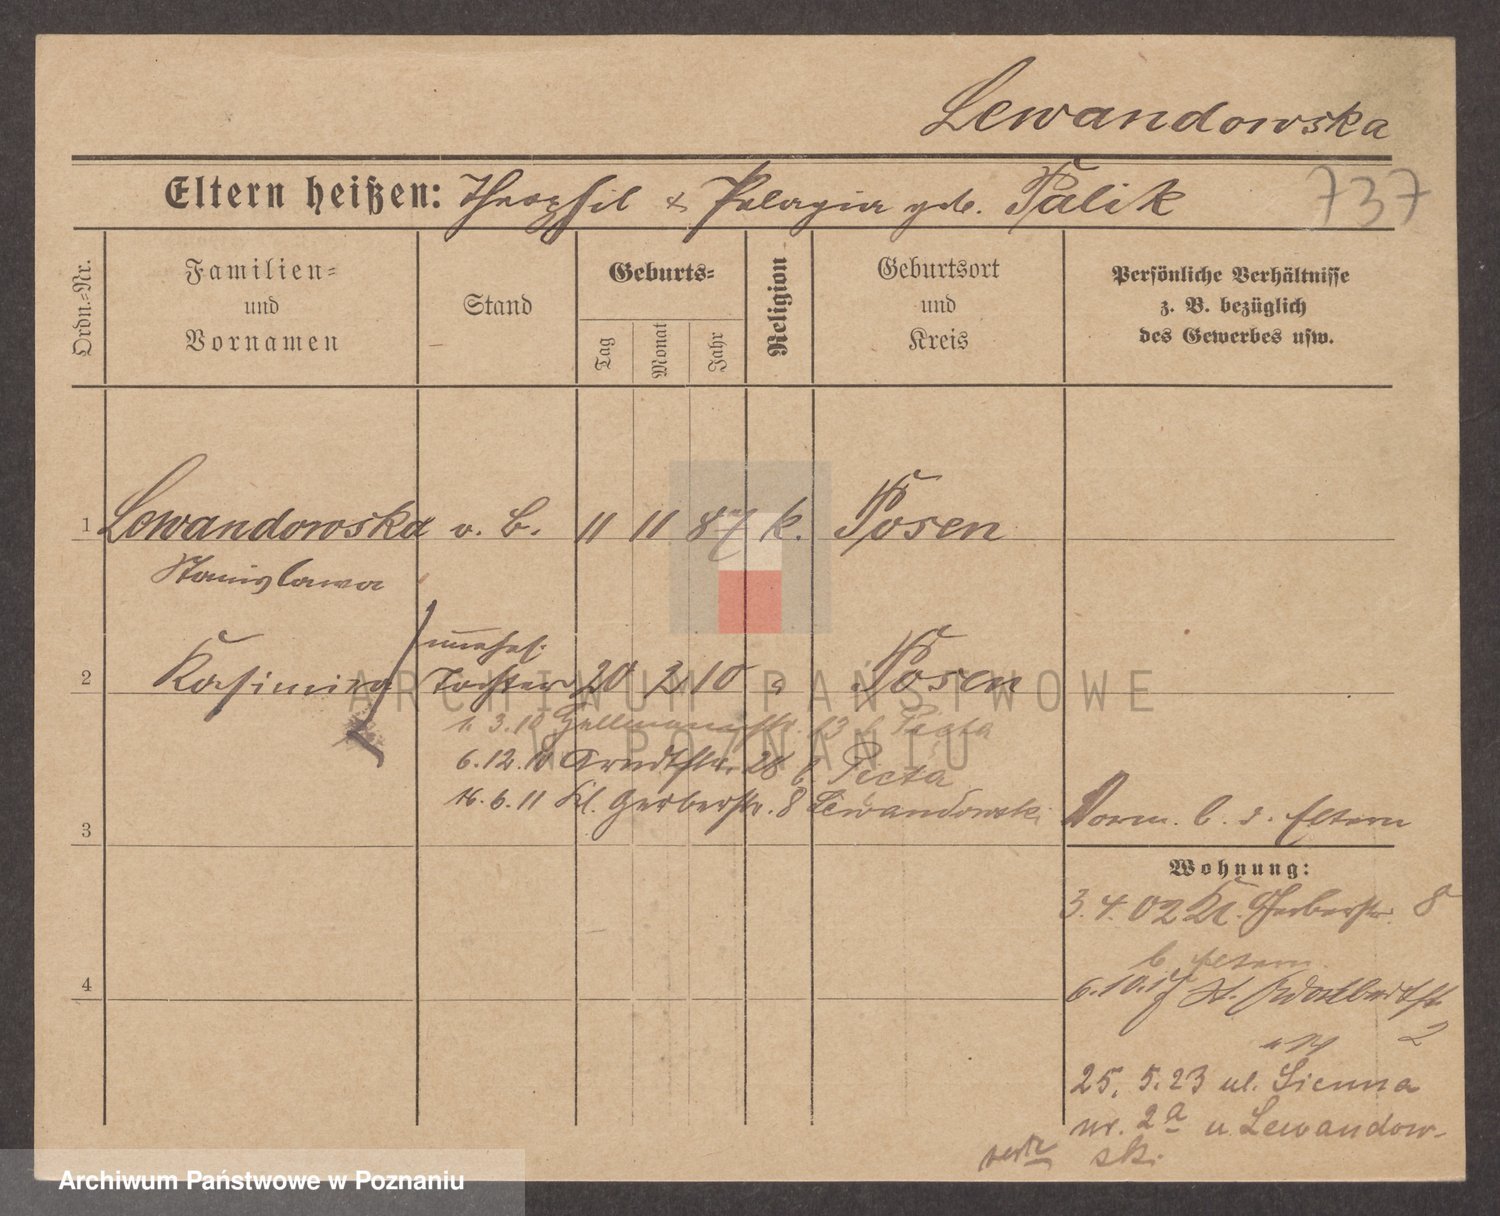 Lewandowska
Eltern heißen: Theophil & Pelagia geb. Palik
737
Ordn.-Nr.
Familien-
und
Vornamen
Stand
Geburts-
Tag
Monat
Jahr
Religion
Geburtsort
und
Kreis
Persönliche Verhältnisse
z. B. bezüglich
des Gewerbes usw.
1 Lewandowska v. B. 11 11 87 k. Posen
Stanislawa
unehel.
2 Kasimira Tochter 20 2 10 Posen
1. 3. 10 13 b Piecta
6. 12. 10 Arndtstr. 28 b. Piecta
16. 6. 11 Kl. Gerberstr. 8 Lewandowski
3
Vorm. b. d. Eltern
Wohnung:
3. 4. 02 Kl. Gerberstr. 8
b. Eltern
4
6. 10. St. Adalbertstr.
2
25. 5. 23 ul. Sienna
nr. 2a u Lewandow-
ski
ARCHIWUM PAŃSTWOWE
W POZNANIU
Archiwum Państwowe w Poznaniu